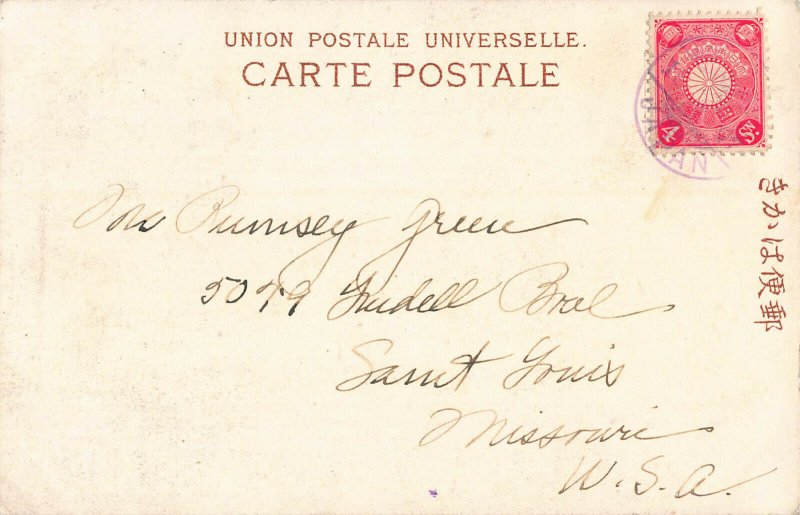 UNION POSTALE UNIVERSELLE.
CARTE POSTALE
4 Sn.
きかは便郵
Rumsey Green
5079 Lindell Boul
Saint Louis
Missouri
U.S.A.